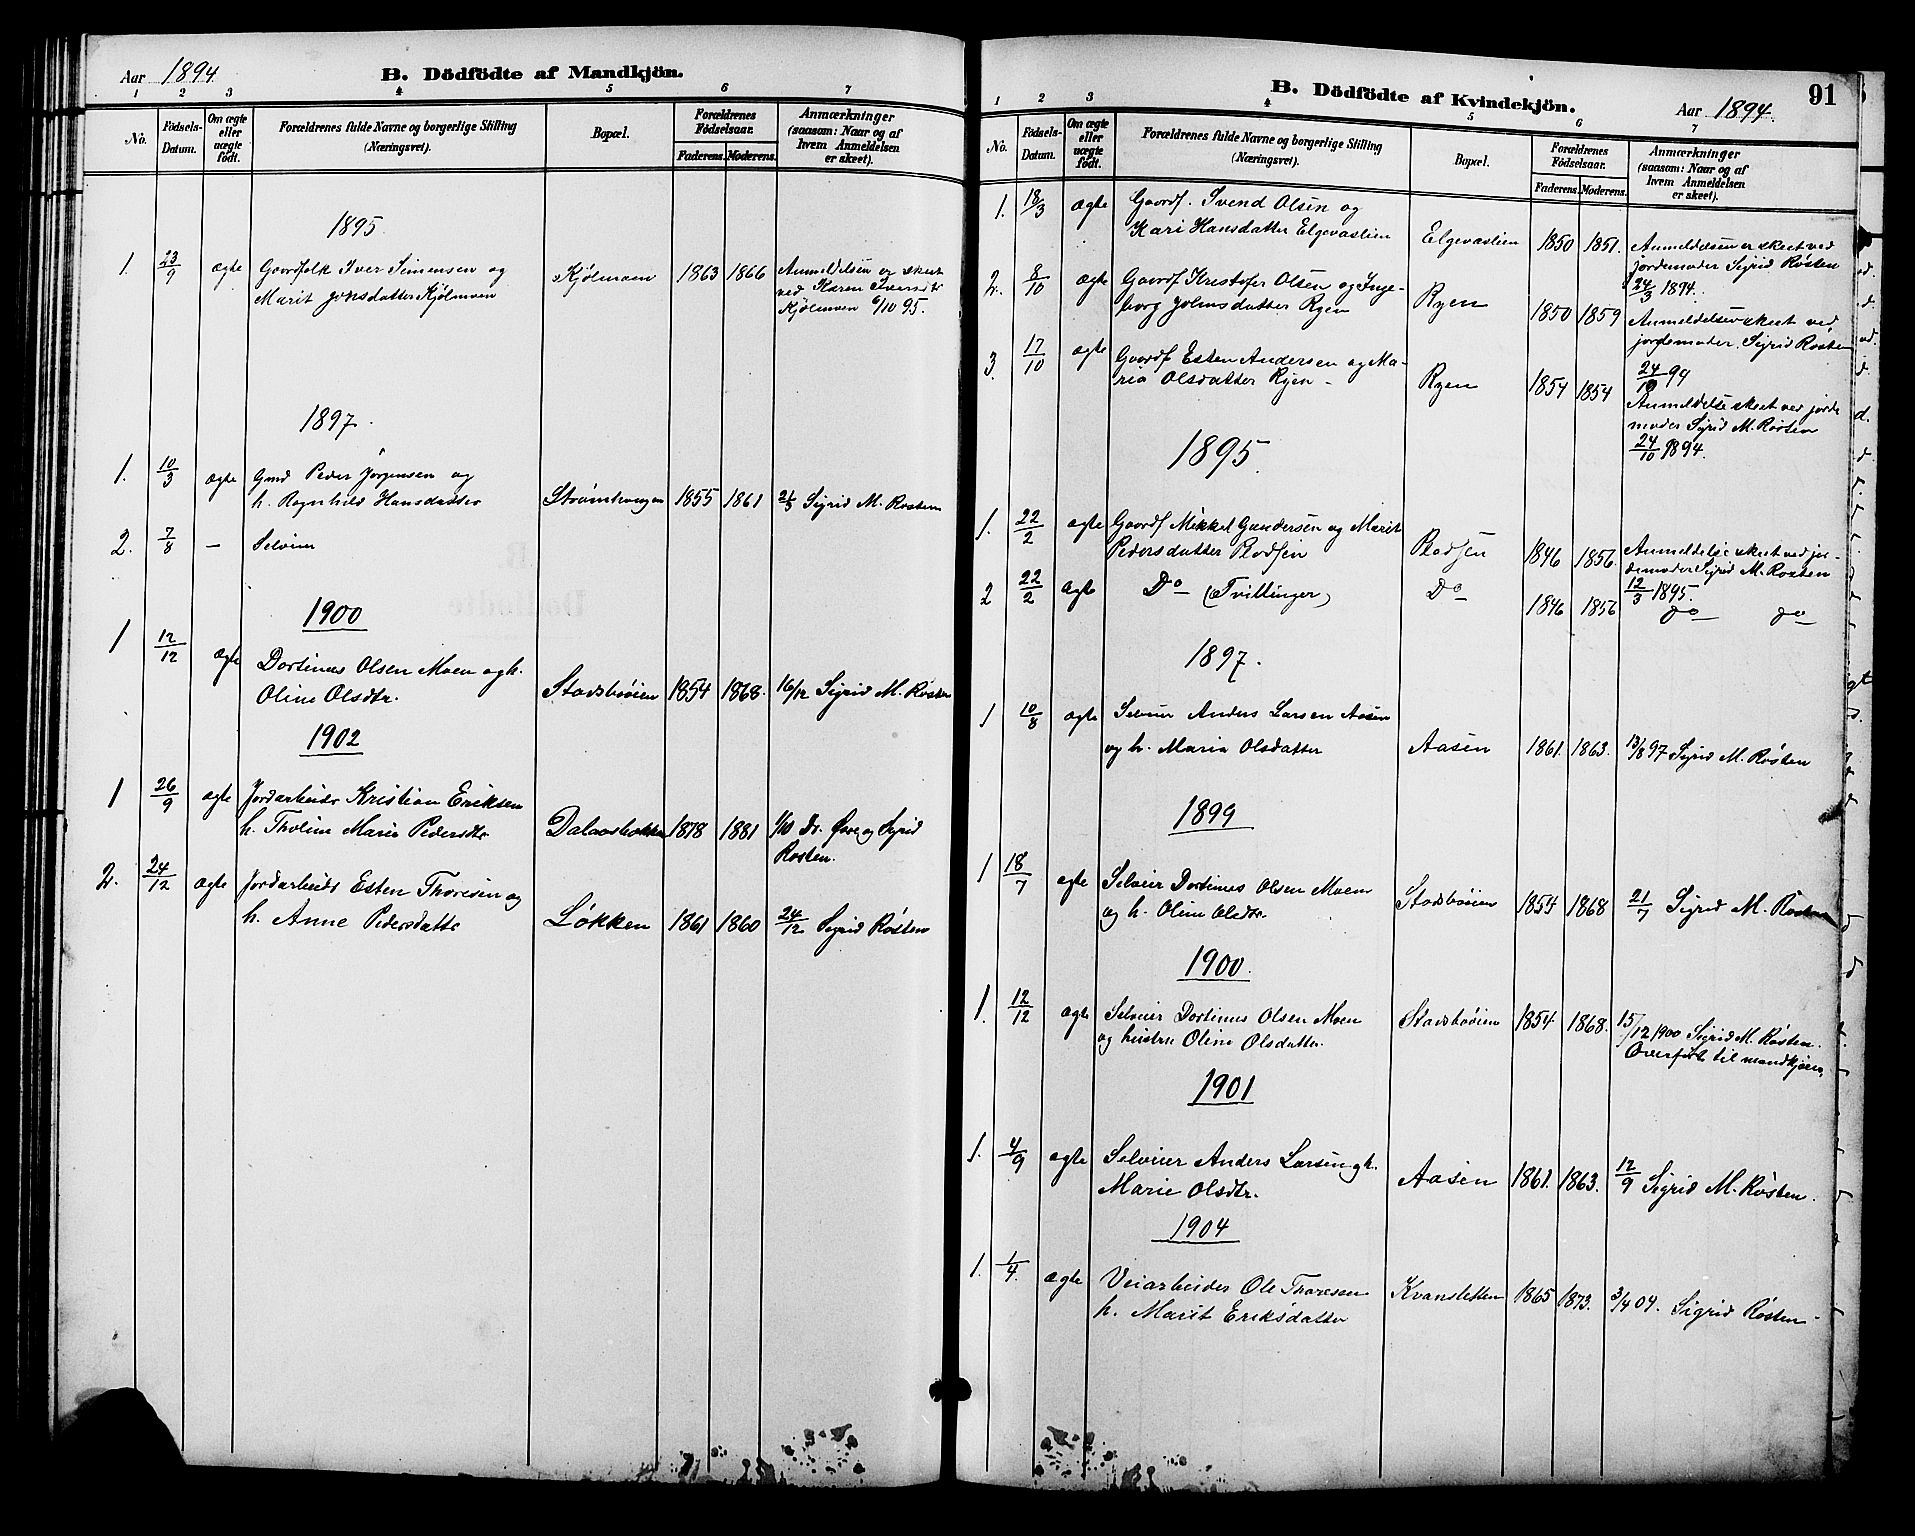 Aar 1894
B. Dödfödte af Mandkjön.
1 2 3 4 5 6 7
No.
Födsels-
Datum.
Om ægte
eller
uægte
födt.
Forældrenes fulde Navne og borgerlige Stilling
(Næringsvei).
Bopæl.
Forældrenes
Födselsaar.
Faderens. Moderens.
Anmærkninger
(saasom: Naar og af
hvem Anmeldelsen
er skeet).
1895
1. 23/9 ægte Gaardfolk Iver Simensen og
Marit Jonsdatter Kjölmoen
Kjölmoen 1863 1866
Anmeldelsen er skeet
ved Karen
Kjölmoen 6/10 95.
1897.
1. 10/3 ægte Gmd Peder Jørgensen og
h. Ragnhild Hansdatter
1855 1861 Sigrid M. Røsten
2. 7/8 — Selveier
1900
1 12/12 ægte Dortinus Olsen Moen og h.
Oline Olsdtr.
Stadsbøien 1854 1868. 16/12 Sigrid M. Røsten
1902
1 26/9 ægte Jordarbeider Kristian Eriksen
h. Tholine Marie Pedersdtr
Dalaasbakken 1878 1881 1/10 Dr. Øvre og Sigrid
Røsten.
2. 24/12 ægte Jordarbeider Esten Thoresen og
h. Anne Pedersdatter
Løkken 1861 1860 24/12 Sigrid Røsten
91
B. Dödfödte af Kvindekjön.
Aar 1894.
1 2 3 4 5 6 7
No.
Födsels-
Datum.
Om ægte
eller
uægte
födt.
Forældrenes fulde Navne og borgerlige Stilling
(Næringsvei).
Bopæl.
Forældrenes
Födselsaar.
Faderens. Moderens.
Anmærkninger
(saasom: Naar og af
hvem Anmeldelsen
er skeet).
1. 18/3 ægte Gaardf. Svend Olsen og
Kari Hansdatter Elgevaslien
Elgevaslien 1850 1851.
Anmeldelsen er skeet ved
jordemoder Sigrid Røsten
24/3 1894.
2. 8/10 ægte Gaardf Kristofer Olsen og Inge-
borg Johnsdatter Ryen
Ryen 1850 1859
Anmeldelsen skeet ved
jordemoder. Sigrid Røsten
24/10 94
3. 17/10 ægte Gaardf Esten Andersen og Ma-
ria Olsdatter Ryen –
Ryen 1854 1854
Anmeldelse skeet ved jorde
moder Sigrid M. Røsten
24/10 1894.
1895.
1. 22/2 ægte Gaardf Mikkel Gundersen og Marit
Pedersdatter
1846 1856.
Anmeldelse skeet ved jor-
demoder Sigrid M. Røsten
12/3 1895.
2 22/2 ægte Do (Tvillinger) Do 1846 1856 do do
1897.
1 10/8 ægte Selveier Anders Larsen Aasen
og h. Maria Olsdatter
Aasen 1861. 1863. 13/8 97 Sigrid M. Røsten
1899
1 18/7 ægte Selveier Dortinus Olsen Moen
og h. Oline Olsdtr.
Stadsbøien 1854 1868 21/7 Sigrid M. Røsten
1900.
1. 12/12 ægte Selveier Dortinus Olsen Moen
og hustru Oline Olsdatter.
Stadsbøien 1854 1868. 15/12 1900 Sigrid M. Røsten.
Overført til mandkjøen.
1901
1. 4/9 ægte Selveier Anders Larsen og h.
Marie Olsdtr.
Aasen 1861. 1863. 12/9 Sigrid M. Røsten.
1904
1. 1/4. ægte Veiarbeider Ole Thoresen
h. Marit Eriksdatter
Kvansletten 1865 1873. 3/4 04. Sigrid Røsten